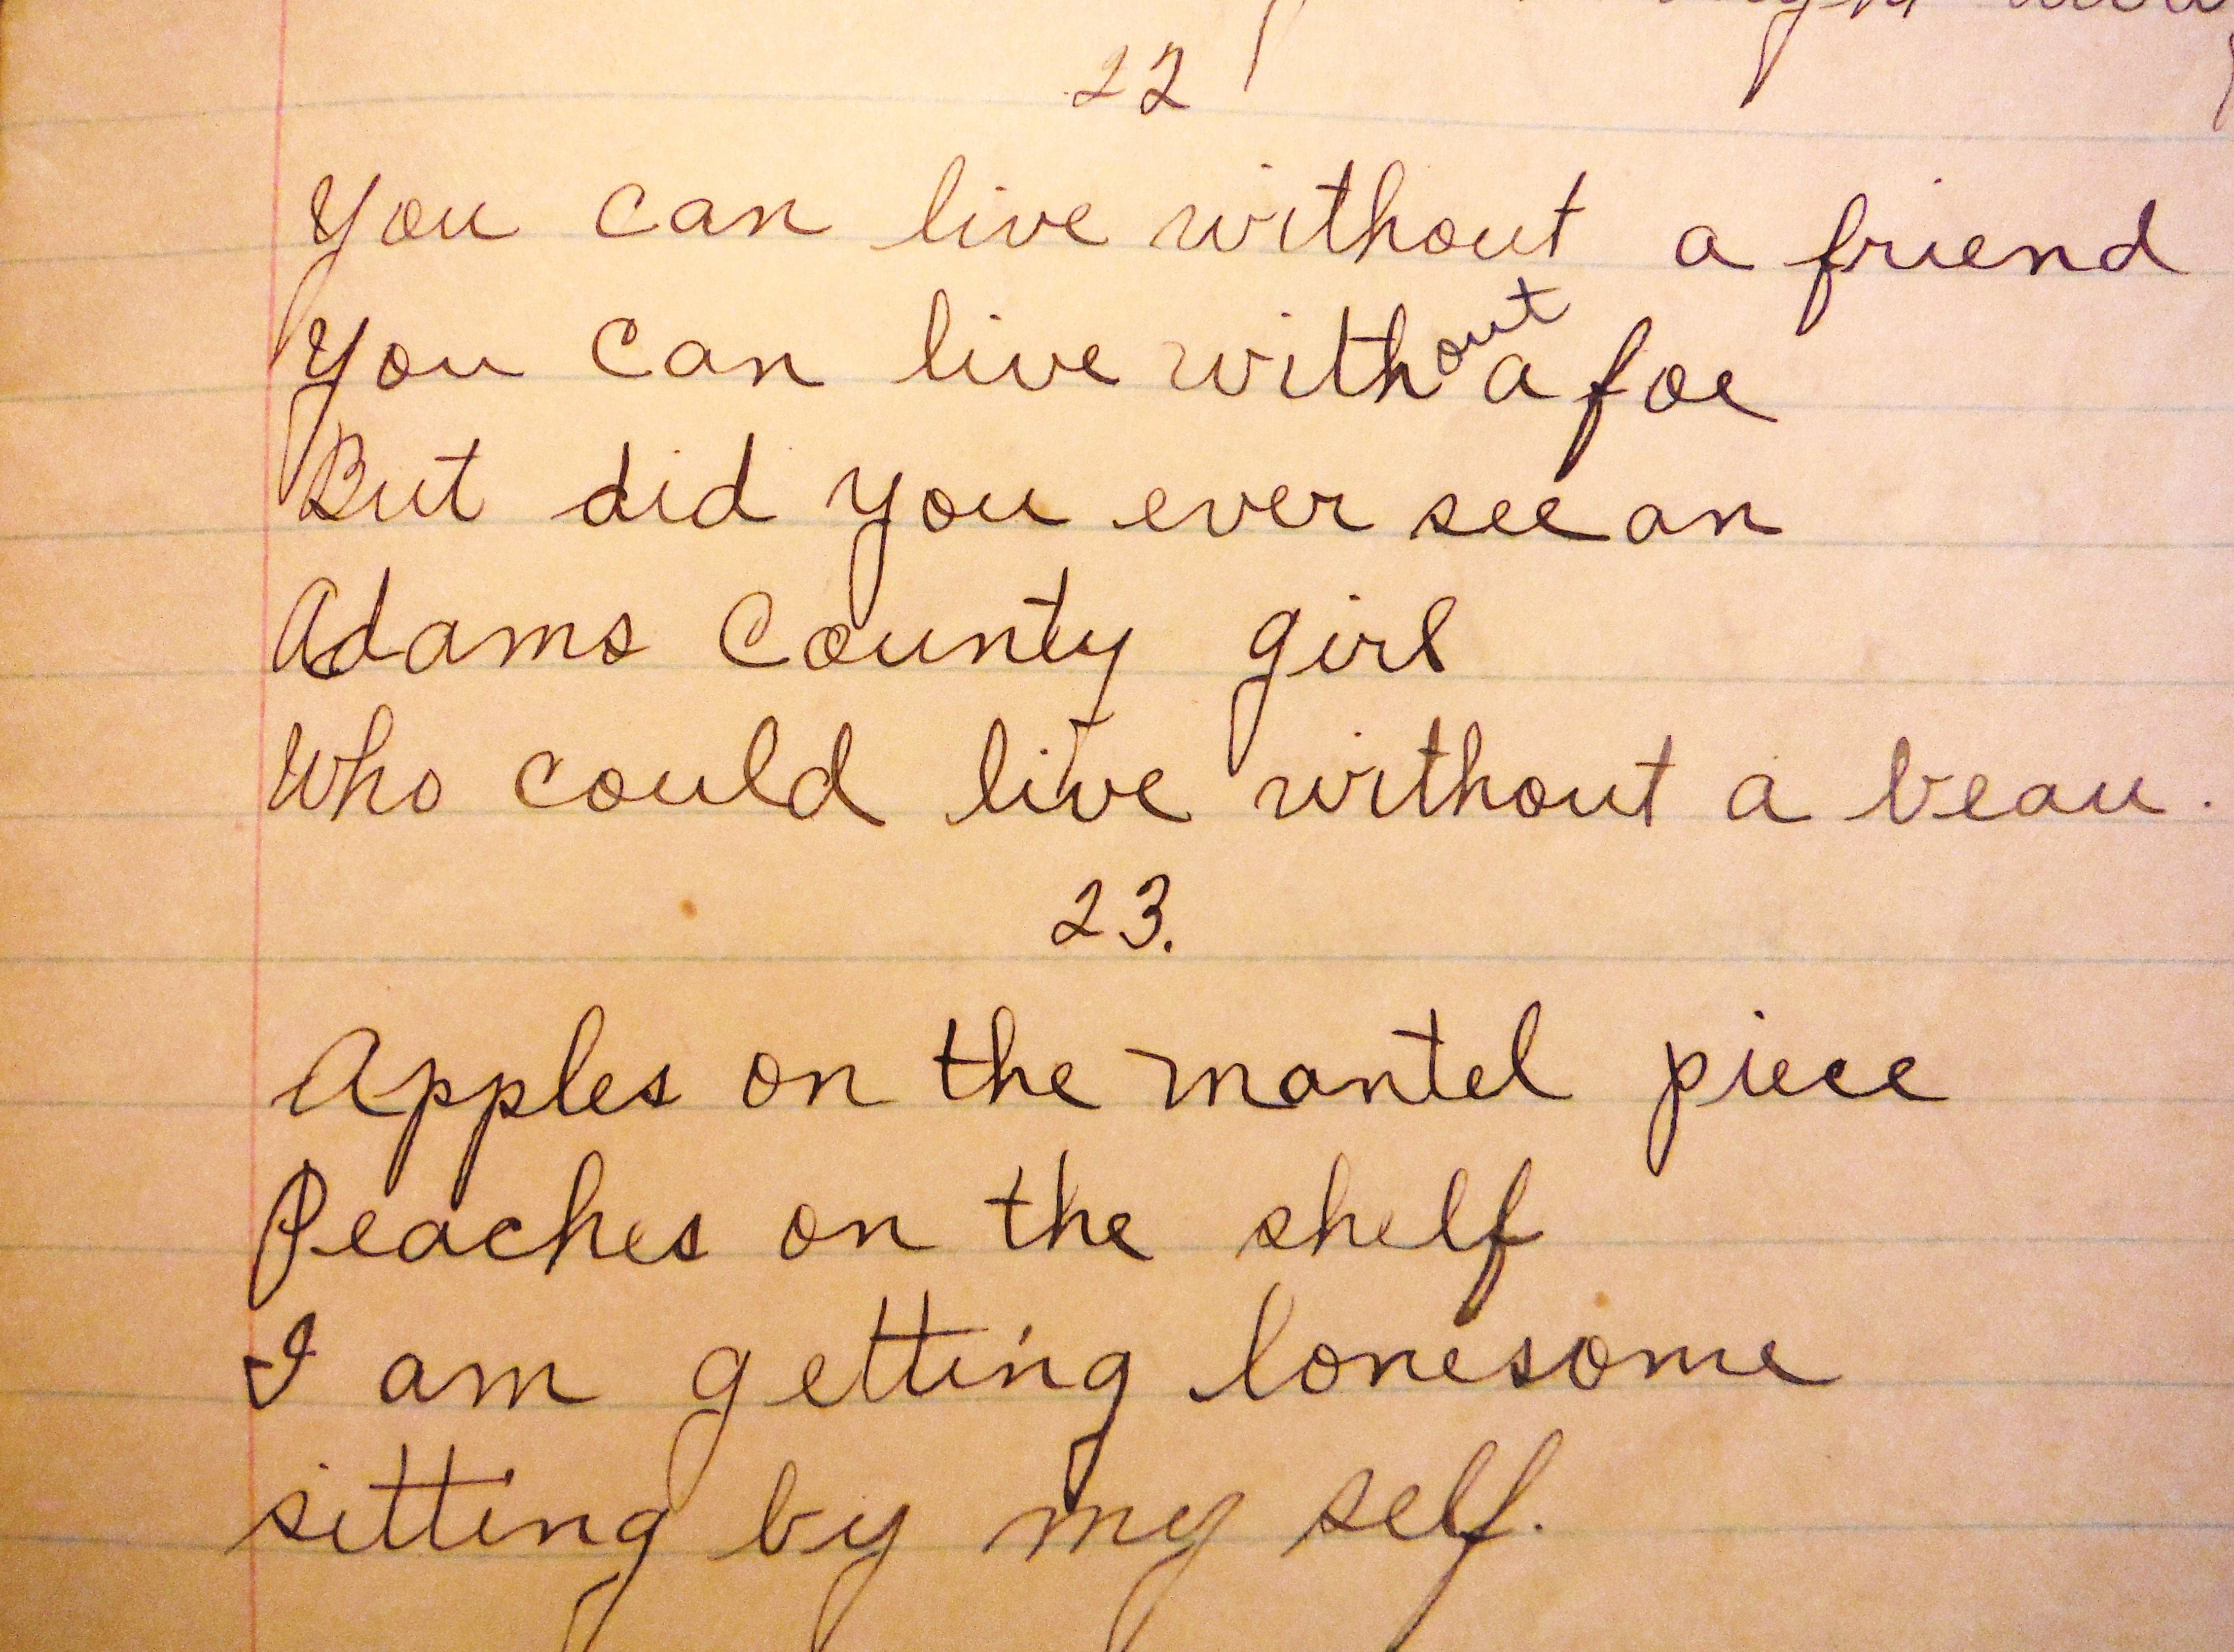 22
You can live without a friend
You can live without a foe
But did you ever see an
Adams County girl
Who could live without a beau.
23.
Apples on the mantel piece
Peaches on the shelf
I am getting lonesome
sitting by my self.